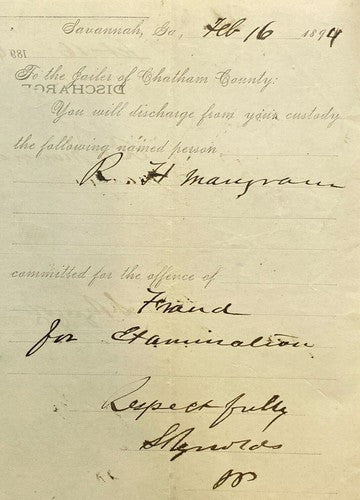 Savannah, Ga, Feb 16 1894
189
To the Jailer of Chatham County:
DISCHARGE
You will discharge from your custody
the following named person
R. H. Mangram
committed for the offence of
Fraud
for Examination
Respectfully